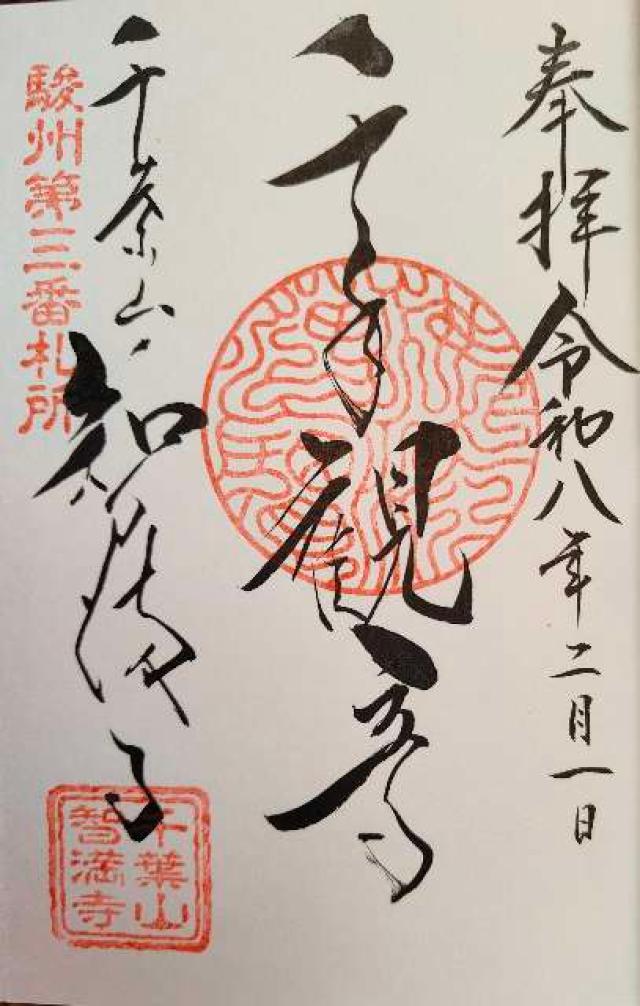 奉拝 令和八年二月一日
千手観音
千葉山 智満寺
駿州第三番札所
千葉山
智満寺